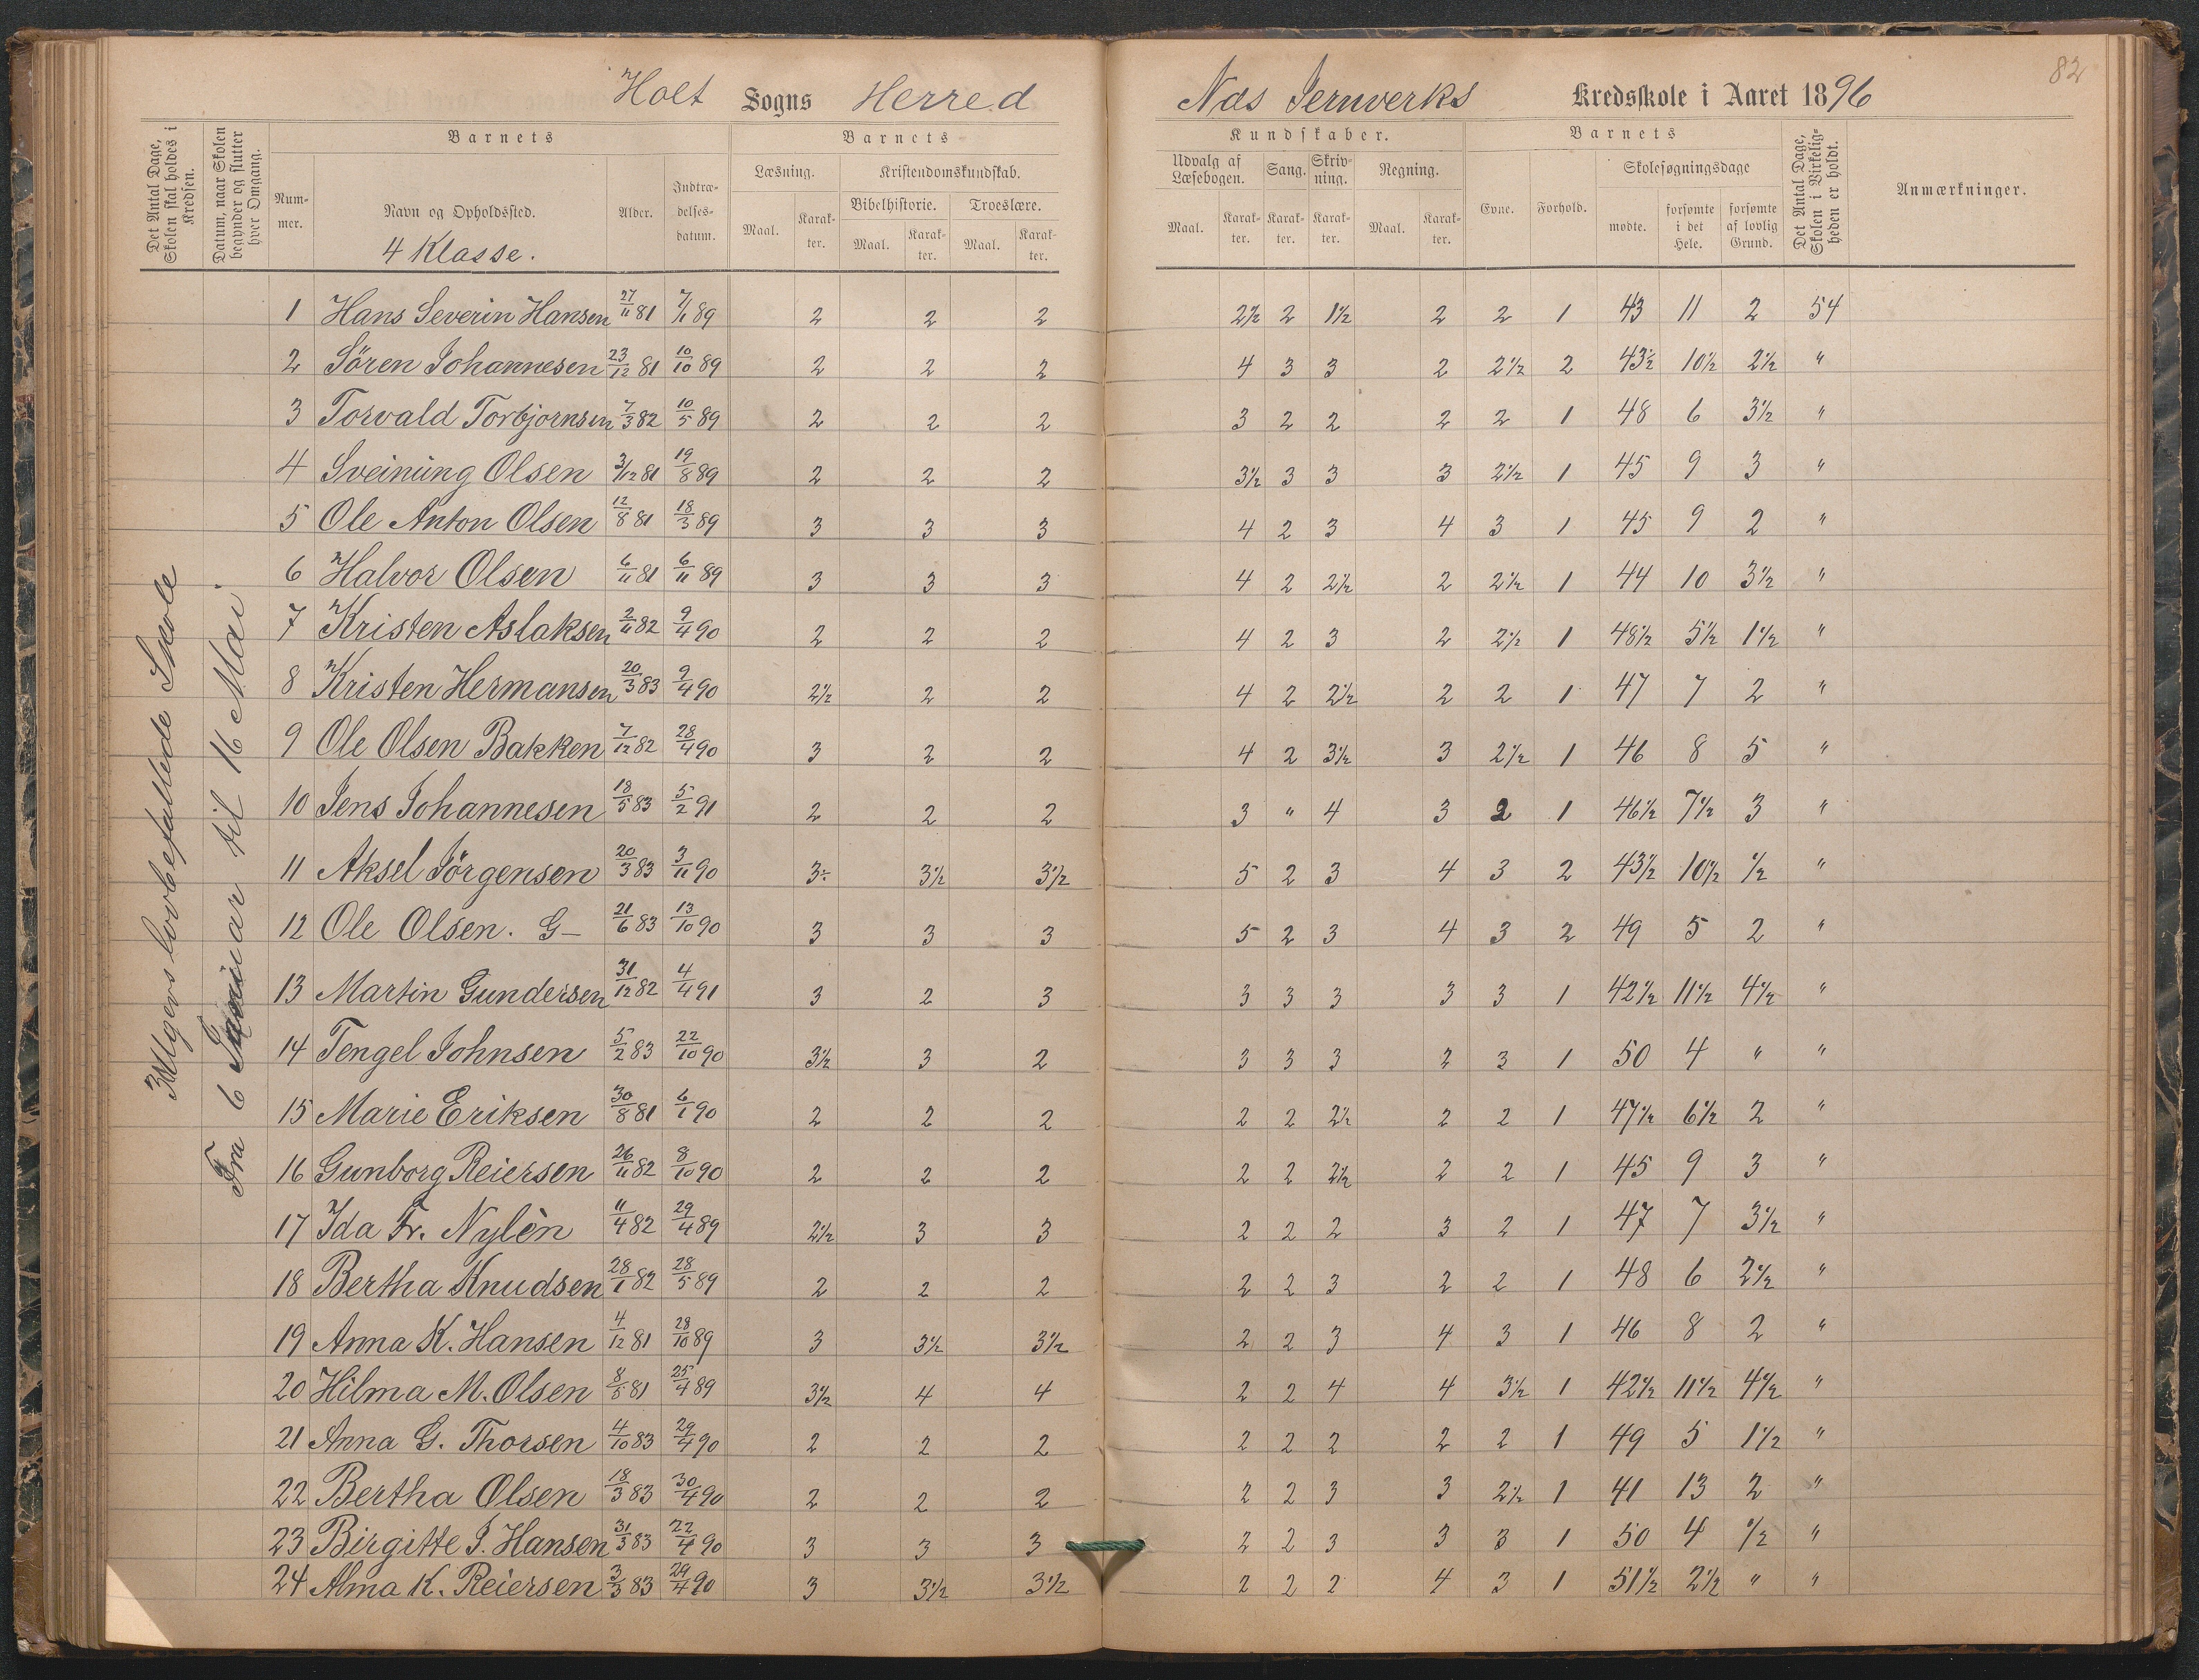 82
Holt Sogns Herred Næs Jernverks Kredsskole i Aaret 1896
Det Antal Dage, Skolen skal holdes i Kredsen.
Datum, naar Skolen begynder og slutter hver Omgang.
Barnets
Barnets
Kundskaber.
Barnets
Det Antal Dage, Skolen i Virkeligheden er holdt.
Anmærkninger.
Nummer.
Navn og Opholdssted.
Alder.
Indtrædelsesdatum.
Læsning.
Kristendomskundskab.
Udvalg af Læsebogen.
Sang.
Skrivning.
Regning.
Evne.
Forhold.
Skolesøgningsdage
Bibelhistorie.
Troeslære.
Maal. Karakter. Maal. Karakter. Maal. Karakter.
Maal. Karakter. Karakter. Karakter. Maal. Karakter.
mødte. forsømte i det Hele. forsømte af lovlig Grund.
4 Klasse.
Fra 6 Januar til 16 Mai.
1 Hans Severin Hansen 27/11 81 7/1 89 2 2 2 2½ 2 1½ 2 2 1 43 11 2 54
2 Sören Johannesen 23/12 81 10/10 89 2 2 2 4 3 3 2 2½ 2 43½ 10½ 2½ "
3 Torvald Torbjornsen 7/3 82 10/5 89 2 2 2 3 2 2 2 2 1 48 6 3½ "
4 Sveinung Olsen 3/12 81 19/8 89 2 2 2 3½ 3 3 3 2½ 1 45 9 3 "
5 Ole Anton Olsen 12/8 81 18/3 89 3 3 3 4 2 3 4 3 1 45 9 2 "
6 Halvor Olsen 6/11 81 6/11 89 3 3 3 4 2 2½ 2 2½ 1 44 10 3½ "
7 Kristen Aslaksen 2/11 82 9/4 90 2 2 2 4 2 3 2 2½ 1 48½ 5½ 1½ "
8 Kristen Hermansen 20/3 83 9/4 90 2½ 2 2 4 2 2½ 2 2 1 47 7 2 "
9 Ole Olsen Bakken 7/12 82 28/4 90 3 2 2 4 2 3½ 3 2½ 1 46 8 5 "
10 Jens Johannesen 18/5 83 5/2 91 2 2 2 3 " 4 3 2 1 46½ 7½ 3 "
11 Aksel Jörgensen 20/3 83 3/11 90 3÷ 3½ 3½ 5 2 3 4 3 2 43½ 10½ ½ "
12 Ole Olsen. G- 21/6 83 13/10 90 3 3 3 5 2 3 4 3 2 49 5 2 "
13 Martin Gundersen 31/12 82 4/4 91 3 2 3 3 3 3 3 3 1 42½ 11½ 4½ "
14 Tengel Johnsen 5/2 83 22/10 90 3½ 3 2 3 3 3 2 3 1 50 4 " "
15 Marie Eriksen 30/8 81 6/1 90 2 2 2 2 2 2½ 2 2 1 47½ 6½ 2 "
16 Gunborg Reiersen 26/11 82 8/10 90 2 2 2 2 2 2½ 2 2 1 45 9 3 "
17 Ida Fr. Nylèn 11/4 82 29/4 89 2½ 3 3 2 2 2 3 2 1 47 7 3½ "
18 Bertha Knudsen 28/1 82 28/5 89 2 2 2 2 2 3 2 2 1 48 6 2½ "
19 Anna K. Hansen 4/12 81 28/10 89 3 3½ 3½ 2 2 3 4 3 1 46 8 2 "
20 Hilma M. Olsen 8/5 81 25/4 89 3½ 4 4 2 2 4 4 3½ 1 42½ 11½ 4½ "
21 Anna G. Thorsen 4/10 83 29/4 90 2 2 2 2 2 2 2 2 1 49 5 1½ "
22 Bertha Olsen 18/3 83 30/4 90 2 2 2 2 2 3 3 2½ 1 41 13 2 "
23 Birgitte J. Hansen 31/3 83 22/4 90 3 3 3 2 2 3 3 3 1 50 4 ½ "
24 Alma K. Reiersen 3/3 83 29/4 90 3 3½ 3½ 2 2 2 4 3 1 51½ 2½ " "